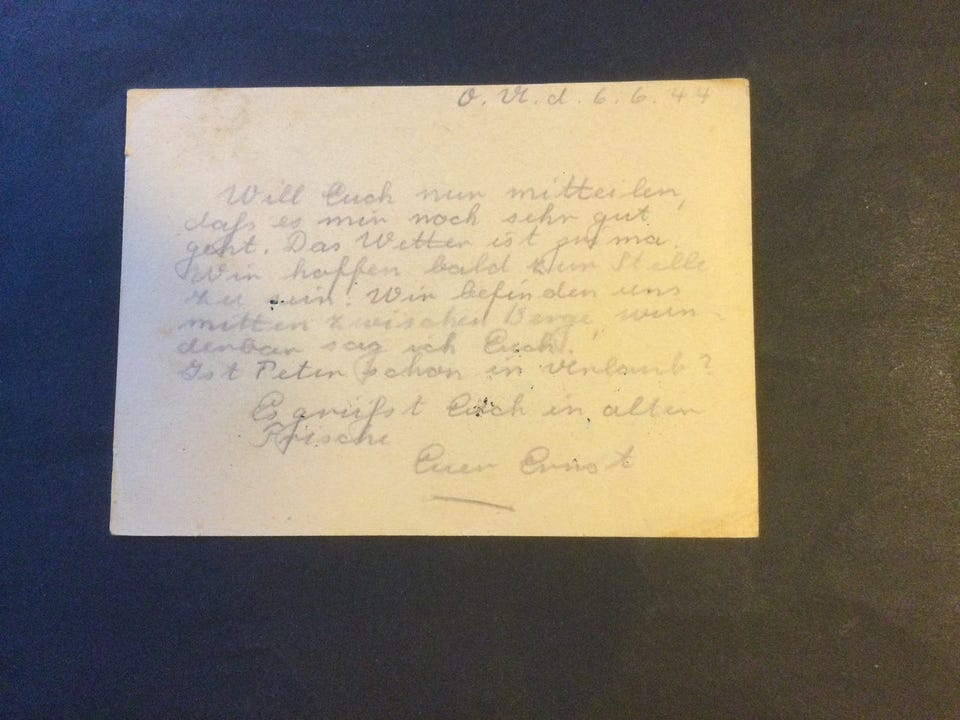 O. U. d. 6. 6. 44
Will Euch nur mitteilen,
dafs es mir noch sehr gut
geht. Das Wetter ist prima.
Wir hoffen bald zur Stelle
zu sein. Wir befinden uns
mitten zwischen Berge, wun-
derbar sag ich Euch!
Ist Peter schon in Urlaub?
Es grüfst Euch in alter
Frische
Euer Ernst